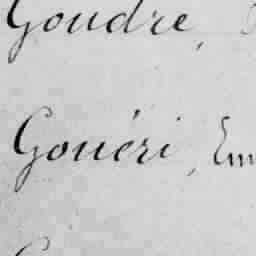 Goudre,
Gouéri, Em